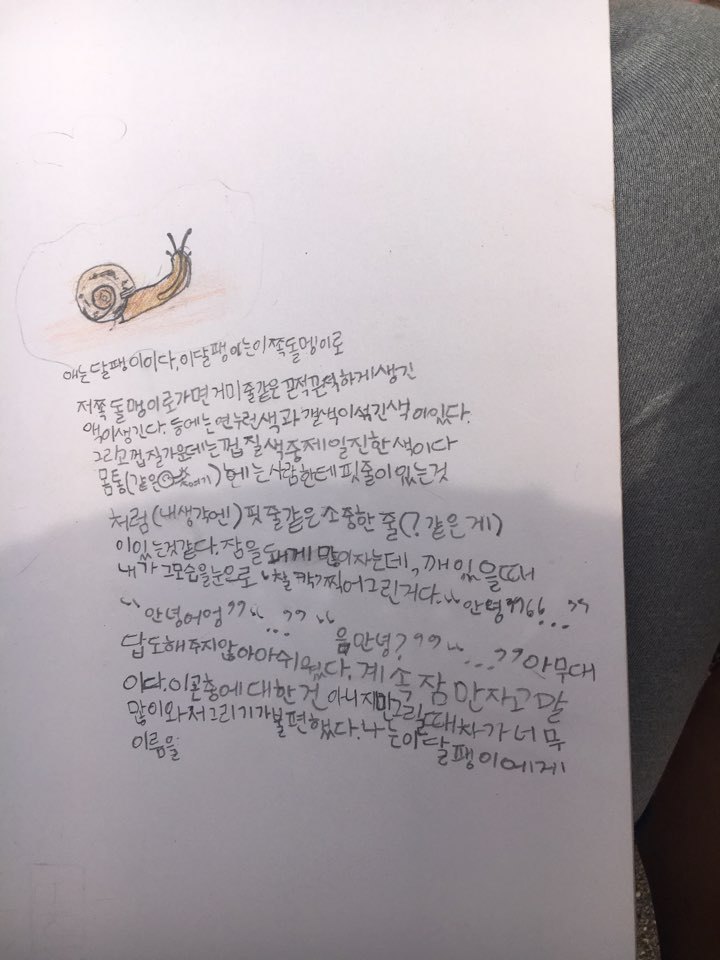 얘는 달팽이이다. 이 달팽이는 이쪽 돌멩이로
저쪽 돌멩이로 가면 거미줄같은 끈적끈적하게 생긴
액이 생긴다. 등에는 연누런색과 갤색이 섞긴색이 있다.
그리고 껍질 가운데는 껍질색중 제일 진한 색이다
몸통(같은 여기)에는 사람한테 핏줄이 있는것
처럼(내생각엔) 핏줄같은 소중한 줄(?같은게)
이 있는것같다. 잠을 돼게 많이 자는데, 깨있을때
내가 그모습을 눈으로 "찰칵?찍어 그린거다. "안녕??"...??
"안녕어엉??"...??" 음 안녕?""...?? 아무 대
답도 해주지 않아 아쉬웠다. 계속 잠만 자고 말
이다. 이 곤충에 대한 건 아니지만 그릴때 차가 너무
많이 와서 그리기가 불편했다. 나는 이 달팽이에게
이름을